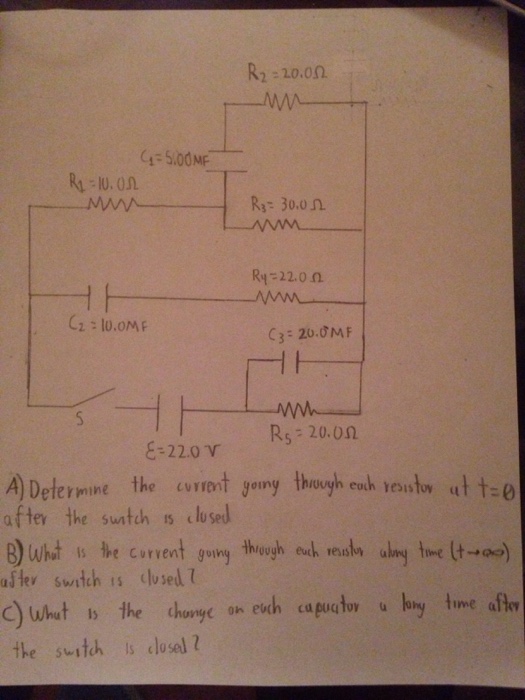 R2 = 20.0Ω
C1 = 5.00MF
R1 = 10.0Ω
R3 = 30.0Ω
R4 = 22.0Ω
C2 = 10.0MF
C3 = 20.0MF
S
ε = 22.0 V
R5 = 20.0Ω
A) Determine the current going through each resistor at t=0
after the switch is closed
B) What is the current going through each resistor along time (t→∞)
after switch is closed?
C) What is the charge on each capacitor a long time after
the switch is closed?